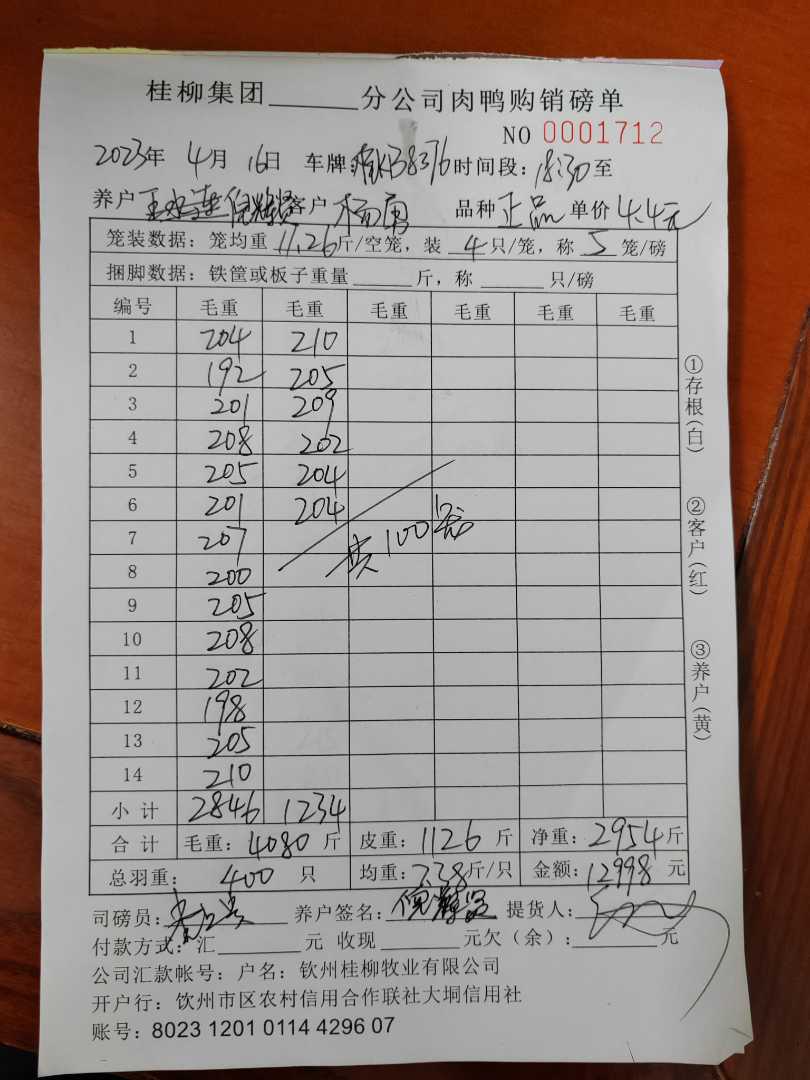 桂柳集团______分公司肉鸭购销磅单
NO 0001712
2023年 4月 16日 车牌: 38376 时间段: 18:30 至
养户 客户 杨勇 品种 正品 单价 4.4元
笼装数据: 笼均重 11.26 斤/空笼, 装 4 只/笼, 称 5 笼/磅
捆脚数据: 铁筐或板子重量______斤, 称______只/磅
编号 毛重 毛重 毛重 毛重 毛重 毛重
1 204 210
2 192 205
3 201 209
4 208 202
5 205 204
6 201 204
7 207
共100笼
8 200
9 205
10 208
11 202
12 198
13 205
14 210
小计 2846 1234
合计 毛重: 4080 斤 皮重: 1126 斤 净重: 2954 斤
总羽重: 400 只 均重: 7.38 斤/只 金额: 12998 元
司磅员: 养户签名: 提货人:
付款方式: 汇______元 收现______元欠(余):______元
公司汇款帐号: 户名: 钦州桂柳牧业有限公司
开户行: 钦州市区农村信用合作联社大垌信用社
账号: 8023 1201 0114 4296 07
①存根(白) ②客户(红) ③养户(黄)